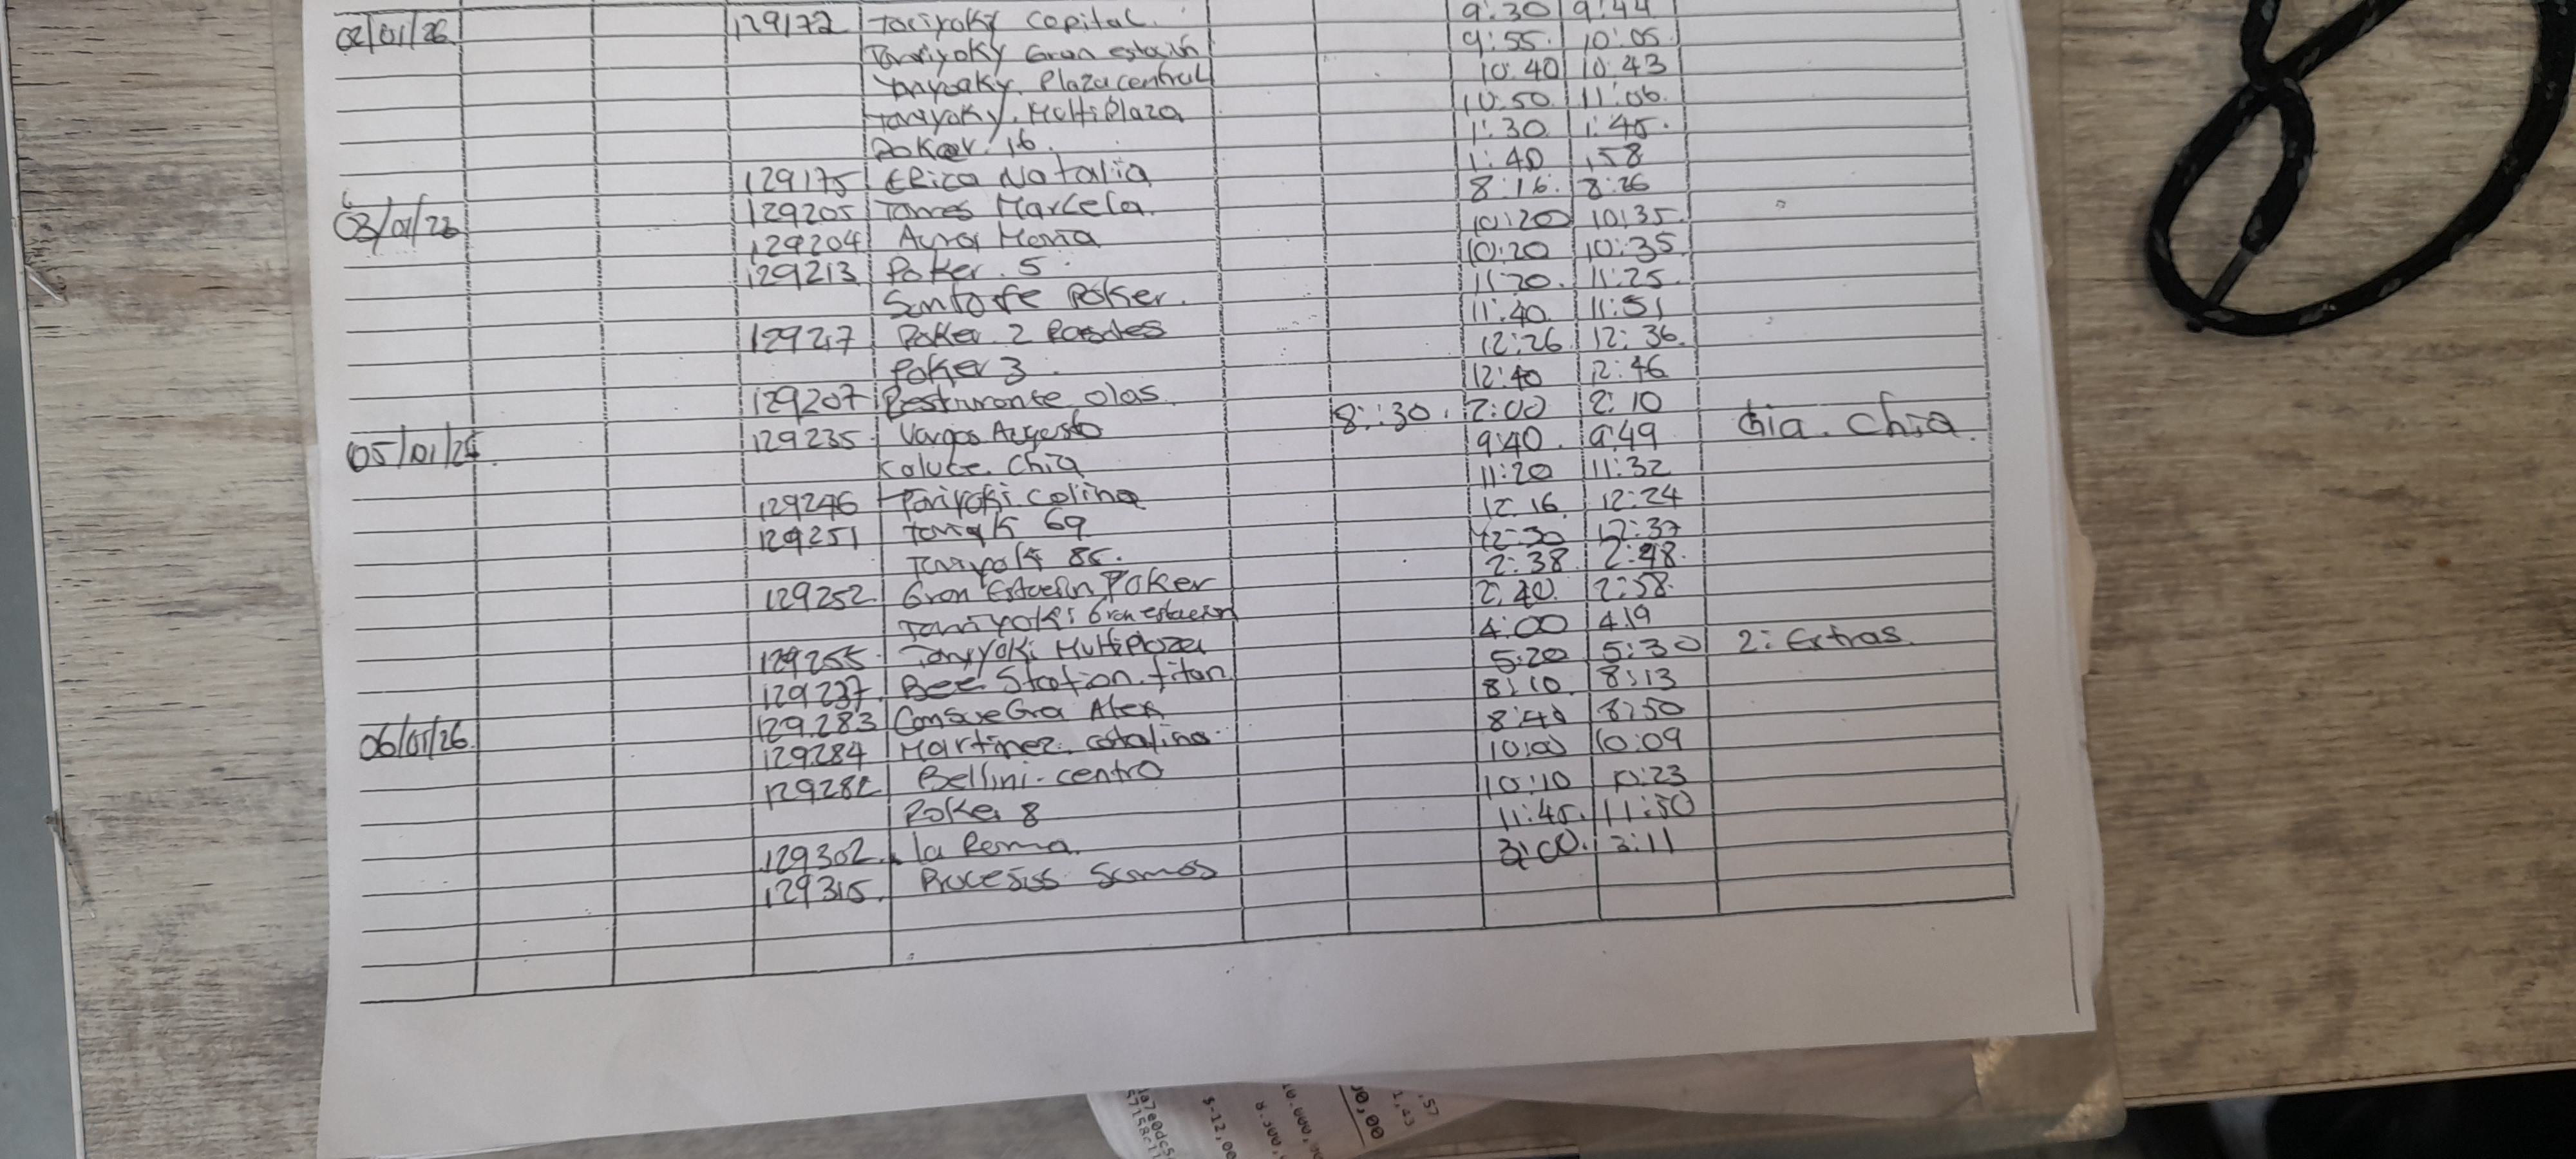 02/01/26 129172 Toriyoky Capital. 9:30 9:44
Toriyoky Gran estación 9:55. 10:05
Yoriyoky. Plaza central 10:40 10:43
Toriyoky. Multiplaza 10:50 11:06.
Poker. 16. 1:30 1:45.
129175 Erica Natalia 1:40 1,58
03/01/26 129205 Torres Marcela. 8:16. 8:26
129204 Maria 10:20 10:35.
129213 Poker. 5. 10:20 10:35
Santafe Poker. 11:20. 11:25.
129217 Poker. 2 11:40. 11:51
Poker 3. 12:26. 12:36.
129207 Resturante olas. 12:40 12:46
05/01/26 129235 Vargas Augusto 8:30. 2:00 2:10
Kaluce. Chia 9:40. 9:49 Chia.
129246 Toriyoki. colina 11:20 11:32
129251 69 12:16. 12:24
85. 12:30 12:37
129252. Gran Estación Poker 2:38. 2:48.
Toriyoki Gran estacion 2:40. 2:58.
129255 Toriyoki Multiplaza 4:00 4:19
129237. Bee Station. titan 5:20 5:30 2: Extras.
06/01/26. 129283 Consuegra Alex 8:10. 8:13
129284 Martinez. catalina. 8:40 8:50
129282 Bellini. centro 10:00 10:09
Poker 8 10:10 10:23
129302. la Roma. 11:45. 11:50
129315. Procesos 3:00. 3:11
$-12,00
00,00
1,43
,57